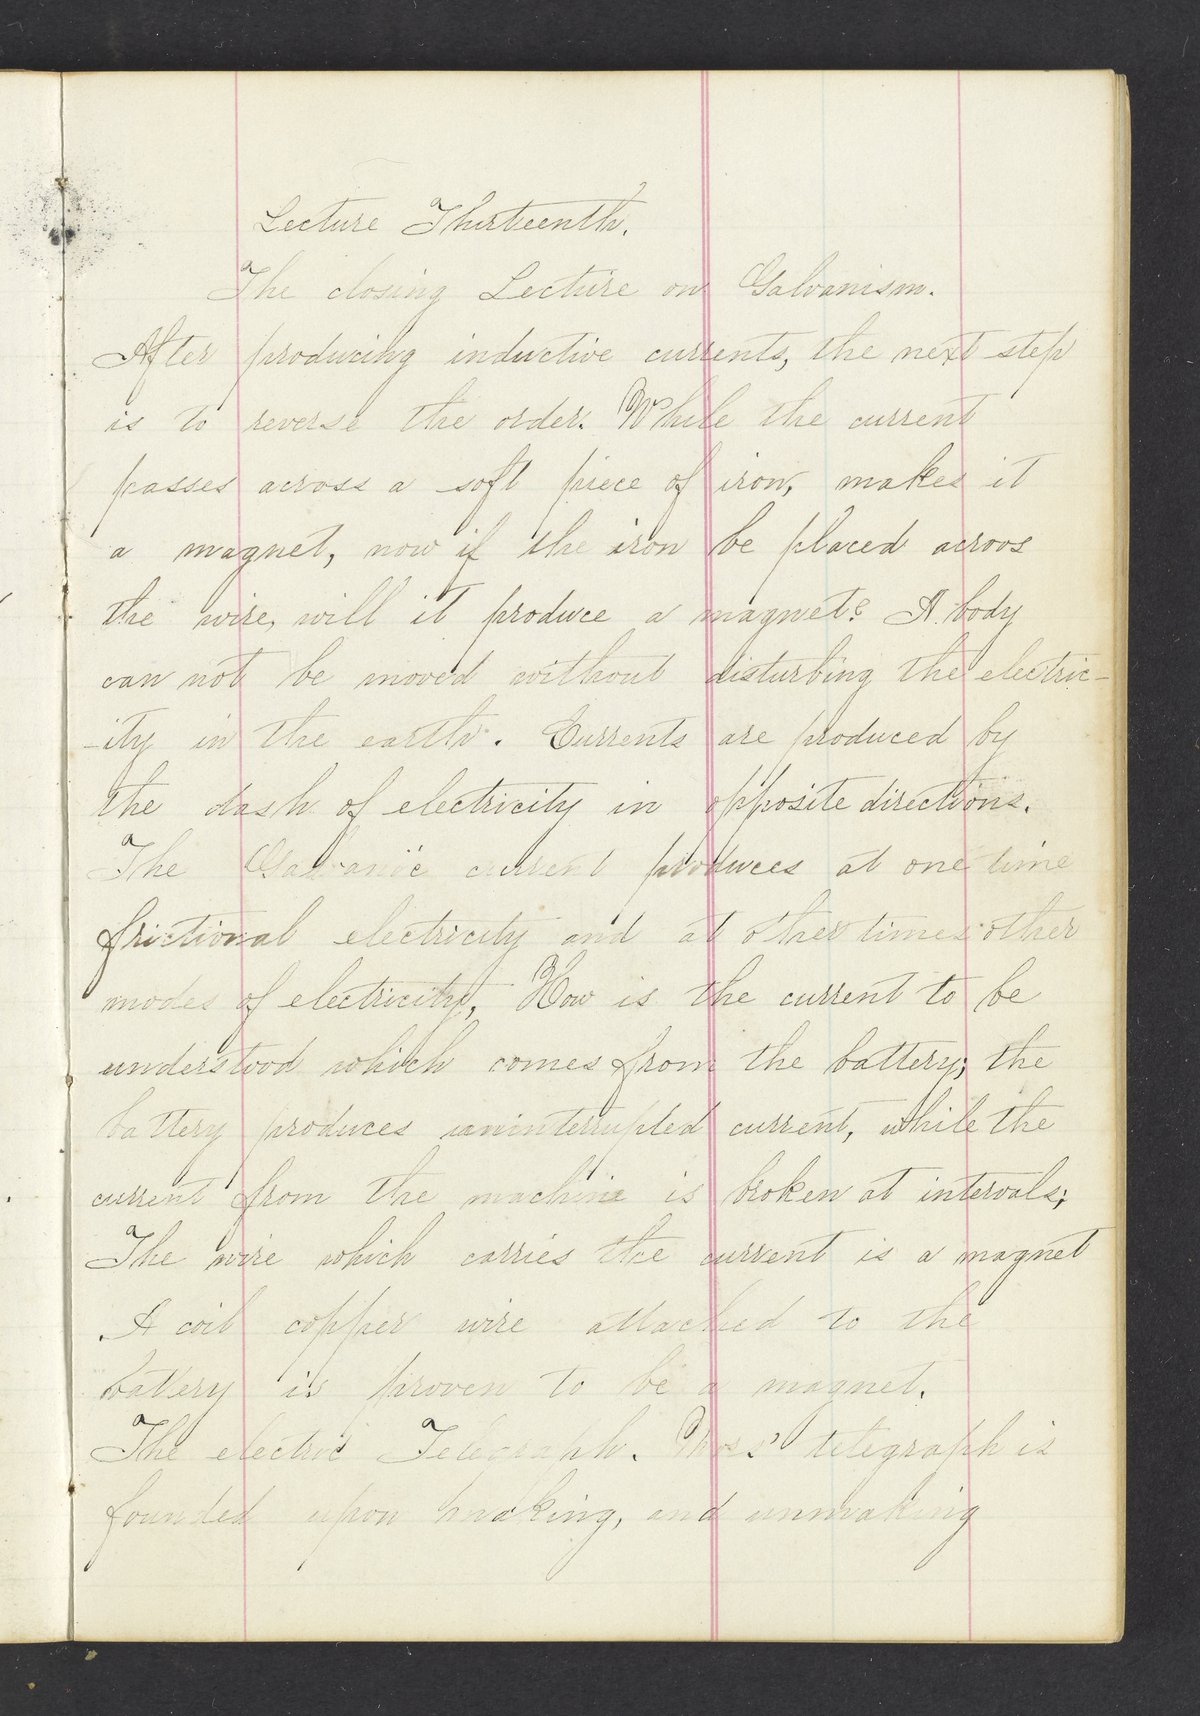 Lecture Thirteenth.
The closing Lecture on Galvanism.
After producing inductive currents, the next step
is to reverse the order. While the current
passes across a soft piece of iron, makes it
a magnet, now if the iron be placed across
the wire, will it produce a magnet? A body
can not be moved without disturbing the electric-
-ity in the earth. Currents are produced by
the dash of electricity in opposite directions.
The Galvanic current produces at one time
frictional electricity and at other times other
modes of electricity, How is the current to be
understood which comes from the battery; the
battery produces uninterrupted current, while the
current from the machine is broken at intervals;
The wire which carries the current is a magnet
. A coil copper wire attached to the
battery is proven to be a magnet.
The electric Telegraph. telegraph is
founded upon making, and unmaking